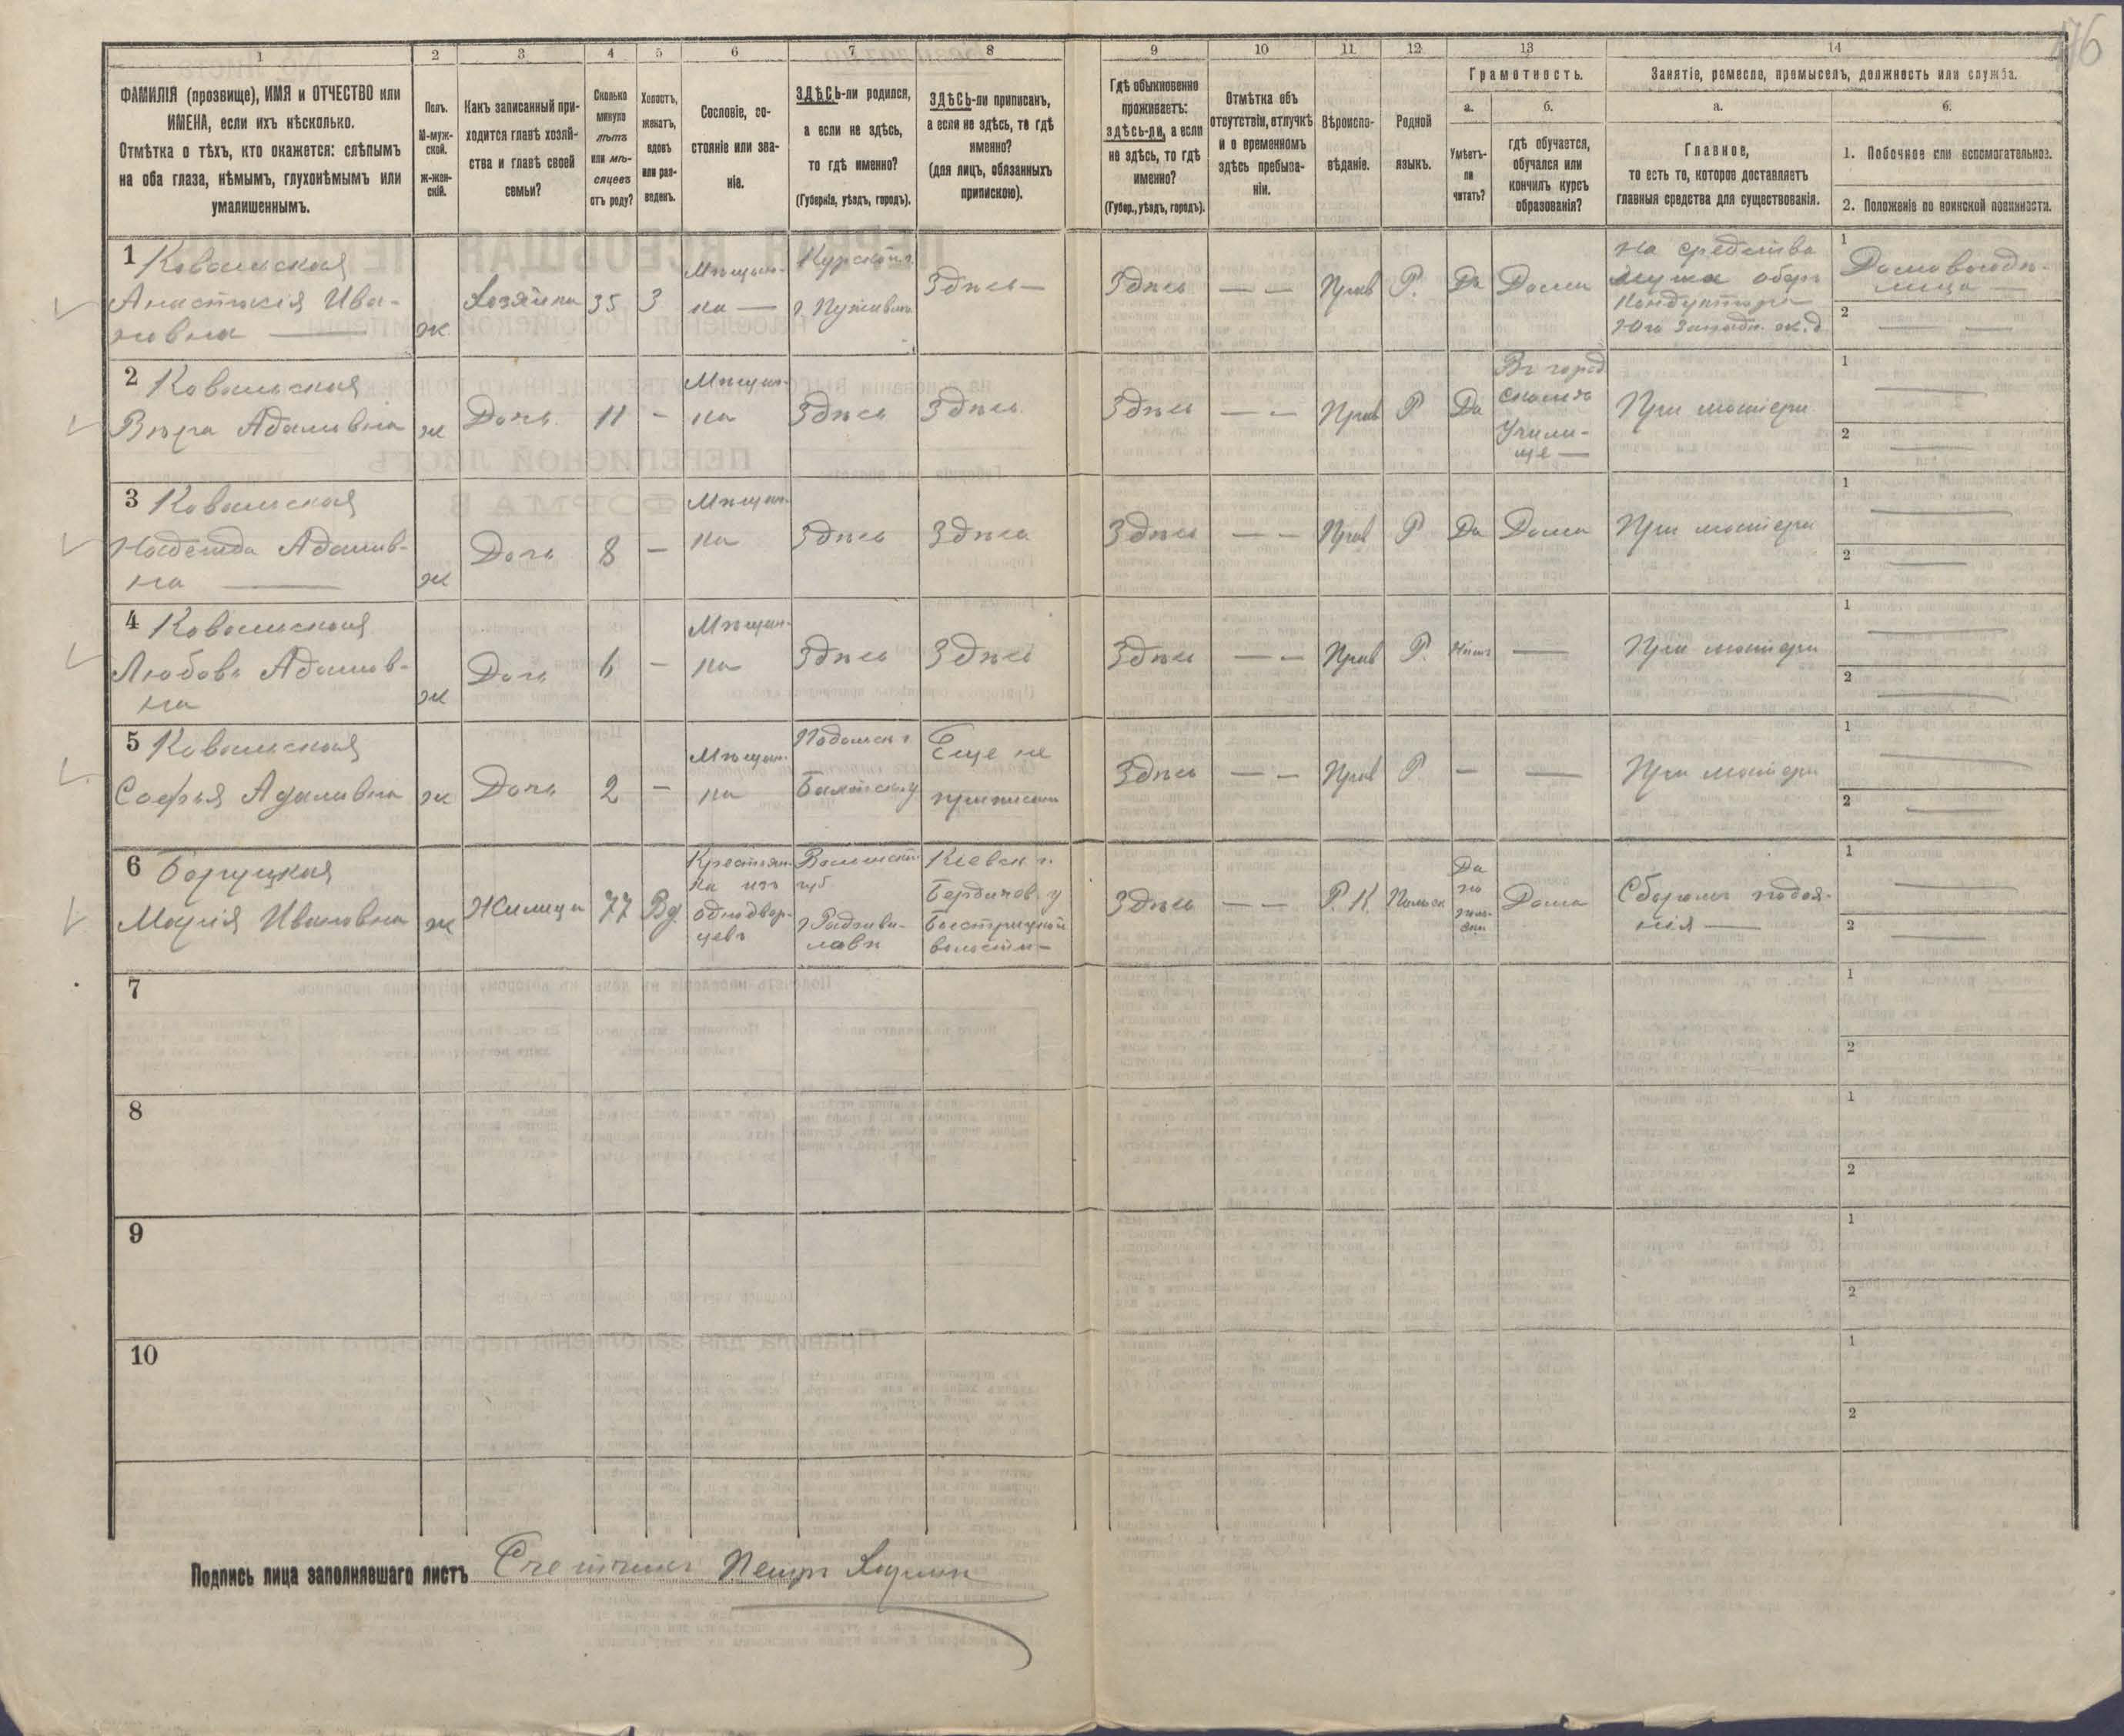 76
1
2
3
4
5
6
7
8
9
10
11
12
13
14
ФАМИЛІЯ (прозвище), ИМЯ и ОТЧЕСТВО или
ИМЕНА, если ихъ нѣсколько.
Отмѣтка о тѣхъ, кто окажется: слѣпымъ
на оба глаза, нѣмымъ, глухонѣмымъ или
умалишеннымъ.
Полъ.
М-муж-
ской.
ж-жен-
скій.
Какъ записанный при-
ходится главѣ хозяй-
ства и главѣ своей
семьи?
Сколько
минуло
лѣтъ
или мѣ-
сяцевъ
отъ роду?
Холостъ,
женатъ,
вдовъ
или раз-
веденъ.
Сословіе, со-
стояніе или зва-
ніе.
ЗДѢСЬ-ли родился,
а если не здѣсь,
то гдѣ именно?
(Губернія, уѣздъ, городъ).
ЗДѢСЬ-ли приписанъ,
а если не здѣсь, то гдѣ
именно?
(для лицъ, обязанныхъ
припискою).
Гдѣ обыкновенно
проживаетъ:
здѣсь-ли, а если
не здѣсь, то гдѣ
именно?
(Губер., уѣздъ, городъ).
Отмѣтка объ
отсутствіи, отлучкѣ
и о временномъ
здѣсь пребыва-
ніи.
Вѣроиспо-
вѣданіе.
Родной
языкъ.
Грамотность.
а.
б.
Умѣетъ-
ли
читать?
гдѣ обучается,
обучался или
кончилъ курсъ
образованія?
Занятіе, ремесло, промыселъ, должность или служба.
а.
б.
Главное,
то есть то, которое доставляетъ
главныя средства для существованія.
1. Побочное или вспомогательное.
2. Положеніе по воинской повинности.
1 Ковальская
Анастасія Ива-
новна —
ж
Хозяйка
35
З
Мѣщан-
ка —
Курской г.
г. Путивль
Здѣсь —
Здѣсь
— —
Прав
Р.
Да
Дома
На средства
мужа оберъ
Кондуктора
Юго Западн. ж. д.
1
Домовладѣ-
лица —
2
— —
2 Ковальская
Вѣра Адамовна
ж
Дочь
11
-
Мѣщан-
ка
Здѣсь
Здѣсь
Здѣсь
— —
Прав
Р
Да
Въ город
скомъ
Учили-
ще —
При матери
1
—
2
—
3 Ковальская
Надежда Адамов-
на —
ж
Дочь
8
—
Мѣщан-
ка
Здѣсь
Здѣсь
Здѣсь
— —
Прав
Р
Да
Дома
При матери
1
—
2
—
4 Ковальская
Любовь Адамов-
на
ж
Дочь
6
—
Мѣщан-
ка
Здѣсь
Здѣсь
Здѣсь
— —
Прав
Р.
Нѣтъ
—
При матери
1
—
2
—
5 Ковальская
Софья Адамовна
ж
Дочь
2
-
Мѣщан-
ка
Подольск г.
Балтск у
Еще не
приписана
Здѣсь
— —
Прав
Р.
—
—
При матери
1
—
2
—
6 Боруцкая
Марія Ивановна
ж
Жилица
77
Вд.
Крестьян-
ка изъ
однодвор-
цевъ
Волынской
губ
г Радзиви-
ловъ
Кіевск г.
Бердичев. у
Быстрицкой
волости —
Здѣсь
— —
Р. К.
Польск
Да
по
поль-
ски
Дома
Сборомъ подая-
нія —
1
—
2
—
7
1
2
8
1
2
9
1
2
10
1
2
Подпись лица заполнявшаго листъ Счетчикъ Петръ